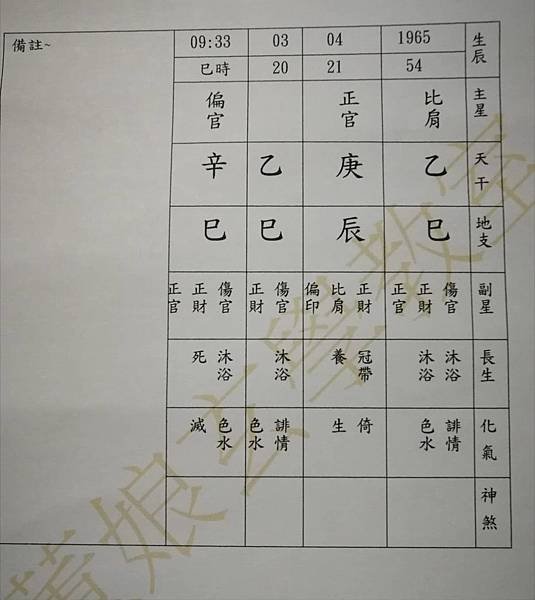 備註~ 09:33 03 04 1965 生辰
巳時 20 21 54
偏官 正官 比肩 主星
辛 乙 庚 乙 天干
巳 巳 辰 巳 地支
正官 正財 傷官 正財 傷官 偏印 比肩 正財 正官 正財 傷官 副星
死 沐浴 沐浴 養 冠帶 沐浴 沐浴 長生
滅 色水 色水 誹情 生 倚 色水 誹情 化氣
神煞
娘玄學教室